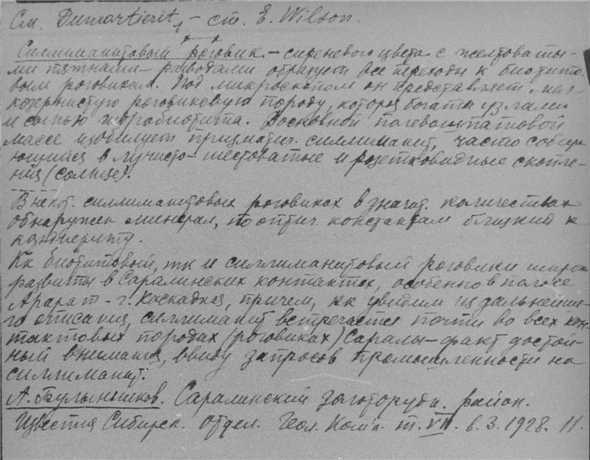 См. Dumortierit, – ст. E. Wilson.
Силлиманитовый роговик – сиреневого цвета с желтоваты-
ми пятнами – разводами образует все переходы к биотито-
вым роговикам. Под микроскопом он представляет
роговиковую породу, которая богата узлами
и сыпью биотита. В основной полевошпатовой
массе изобилует призматич. силлиманит, часто собир
ающийся в лучисто-шестоватые и розетковидные скопле-
ния (солнце).
В некот. силлиманитовых роговиках в значит. количествах
обнаружен минерал, по оптич. константам близкий к
кордиериту.
Кк биотитовый, тк и силлиманитовый роговики широко
развиты в Саралинских контактах, особенно в полосе
Арарат – г. Каскадная, причем, кк увидим из дальнейше-
го описания, силлиманит встречается почти во всех кон-
тактовых породах (роговиках) Саралы – факт достой-
ный внимания, ввиду запросов промышленности на
силлиманит.
А. Булынников. Саралинский золоторудн. район.
Известия Сибирск. отдел. Геол. Кома. т. VII в. 3. 1928. 11.